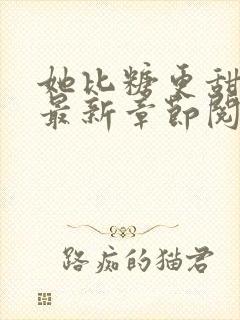 她比糖更甜
最新章节阅
路痴的猫君